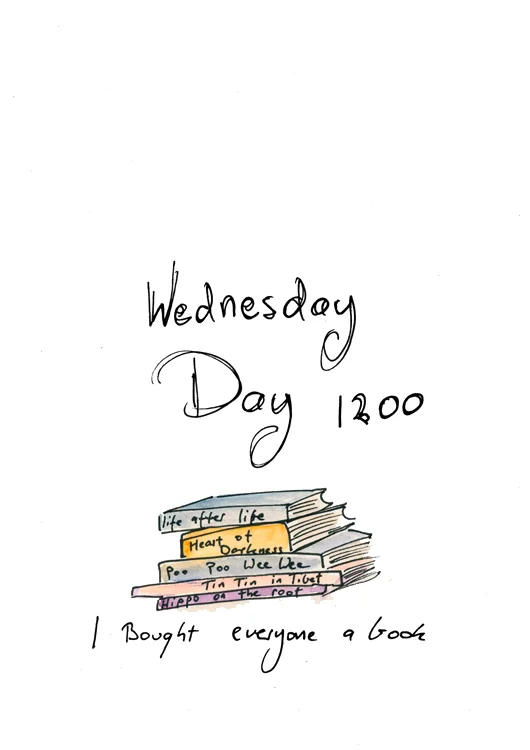 Wednesday
Day 1200
life after life
Heart of
Darkness
Poo Poo Wee Wee
Tin Tin in Tibet
Hippo on the roof
I Bought everyone a book